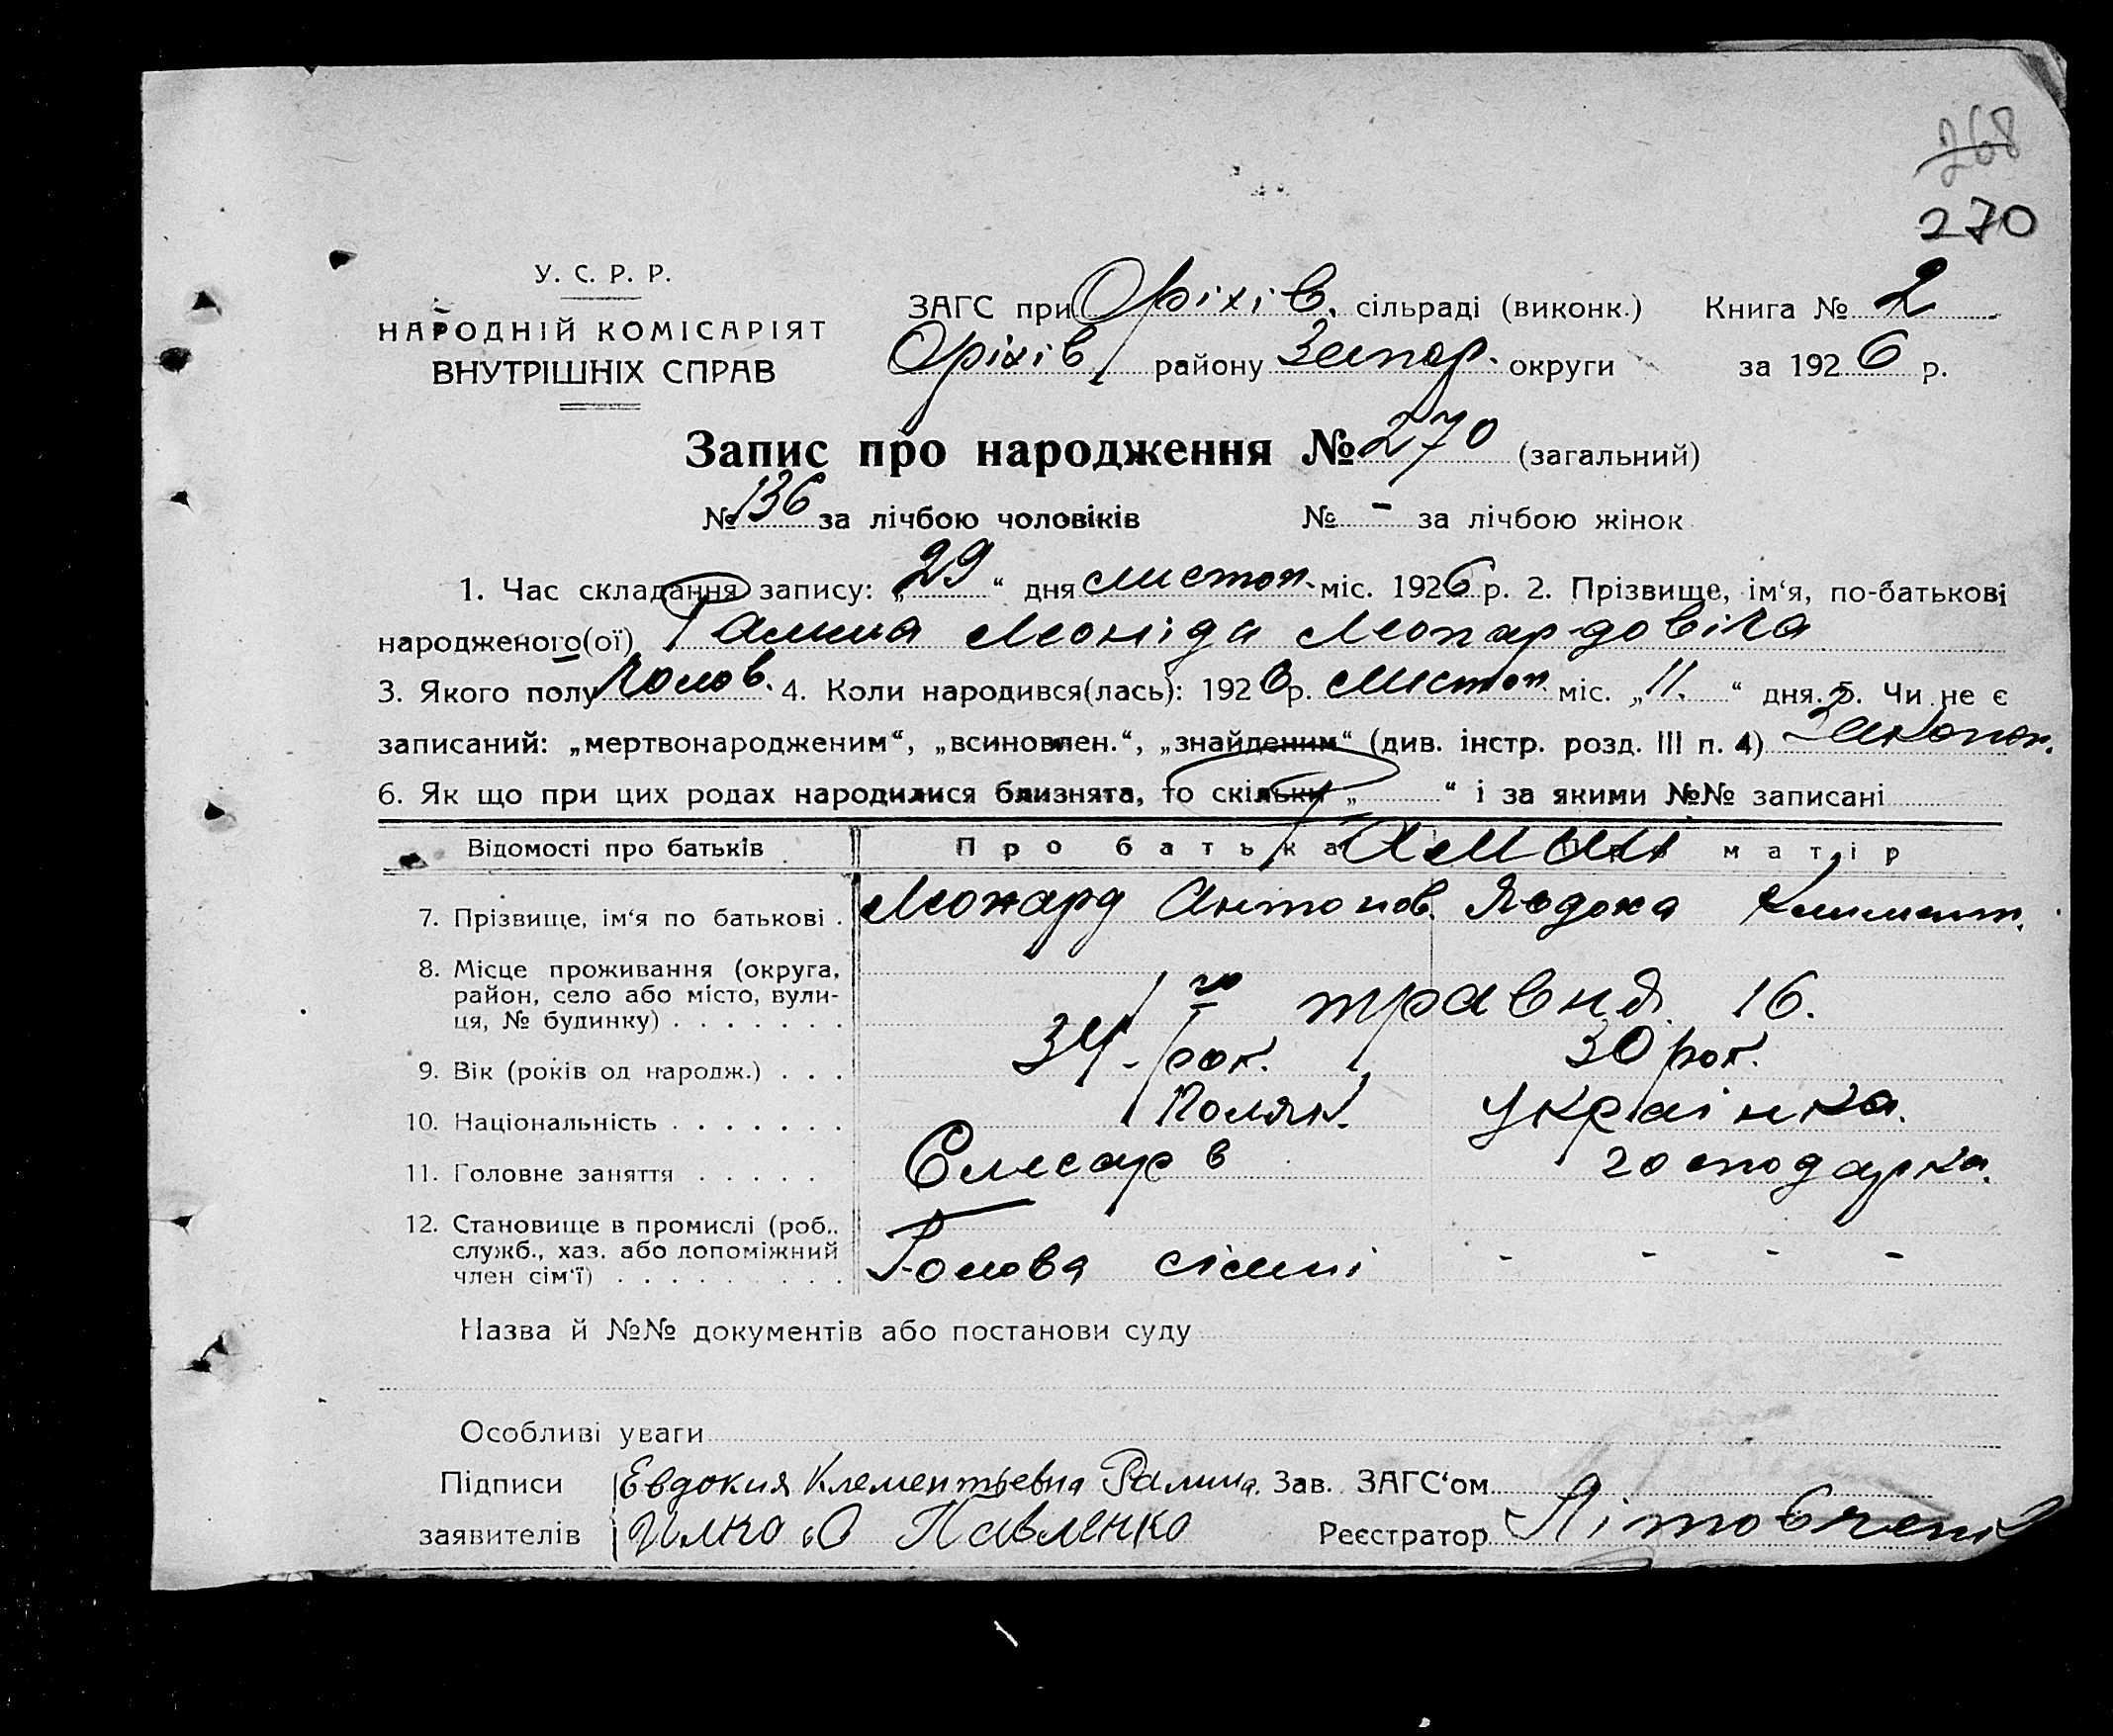 268
270
У. С. Р. Р.
НАРОДНІЙ КОМІСАРІЯТ
ВНУТРІШНІХ СПРАВ
ЗАГС при Оріхів. сільраді (виконк.) Книга № 2
Оріхів району Запор. округи за 1926 р.
Запис про народження № 270 (загальний)
№ 136 за лічбою чоловіків № - за лічбою жінок
1. Час складання запису: „29“ дня листоп. міс. 1926 р. 2. Прізвище, ім‘я, по-батькові
народженого(ої) Леоніда
3. Якого полу Чолов. 4. Коли народився(лась): 1926 р. листоп. міс. „11.“ дня. 5. Чи не є
записаний: „мертвонародженим“, „всиновлен.“, „знайденим“ (див. інстр. розд. III п. 4) Законон.
6. Як що при цих родах народилися близнята, то скільки „ “ і за якими №№ записані
Відомості про батьків Про батька Про матір
7. Прізвище, ім‘я по батькові . Антонов. Явдоха Климент.
8. Місце проживання (округа,
район, село або місто, вули-
ця, № будинку) . . . . . . . 1го травня 16.
9. Вік (років од народж.) . . . 34 рок. 30 рок.
10. Національність . . . . . . . Поляк. Українка.
11. Головне заняття . . . . . Слесарь господарка.
12. Становище в промислі (роб.,
служб., хаз. або допоміжний
член сім‘ї) . . . . . . . . . Голова сімї - - - -
Назва й №№ документів або постанови суду
Особливі уваги
Підписи Евдокия Клементьевна Ралина. Зав. ЗАГС‘ом
заявителів Павленко Реєстратор